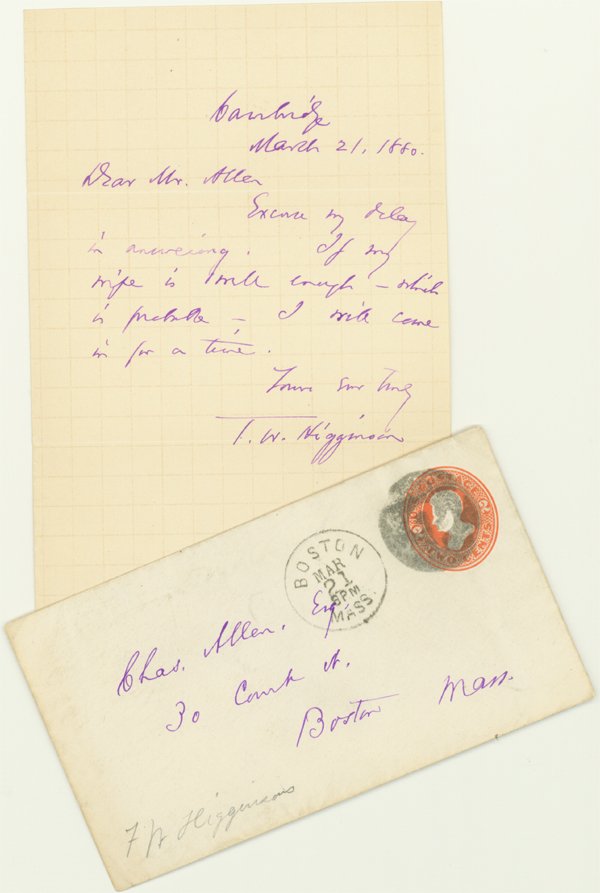 Cambridge
March 21, 1880.
Dear Mr. Allen
Excuse my delay
in answering. If my
wife is well enough – which
is probable – I will come
in for a time.
Yours very truly
T. W. Higginson
BOSTON
MAR
21
8PM
MASS
Chas. Allen, Esq.
30 Court St.
Boston Mass.
T W Higginsons